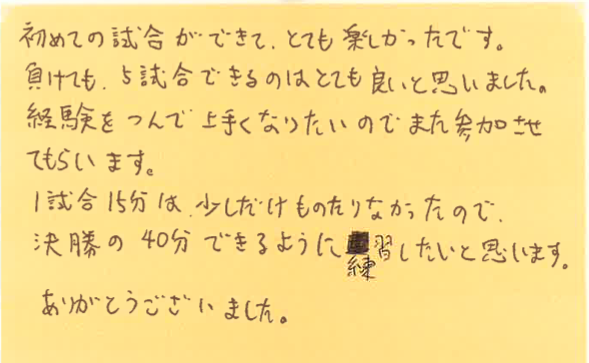 初めての試合ができて、とても楽しかったです。
負けても、5試合できるのはとても良いと思いました。
経験をつんで上手くなりたいのでまた参加させ
てもらいます。
1試合15分は、少しだけものたりなかったので、
決勝の40分できるように練習したいと思います。
ありがとうございました。